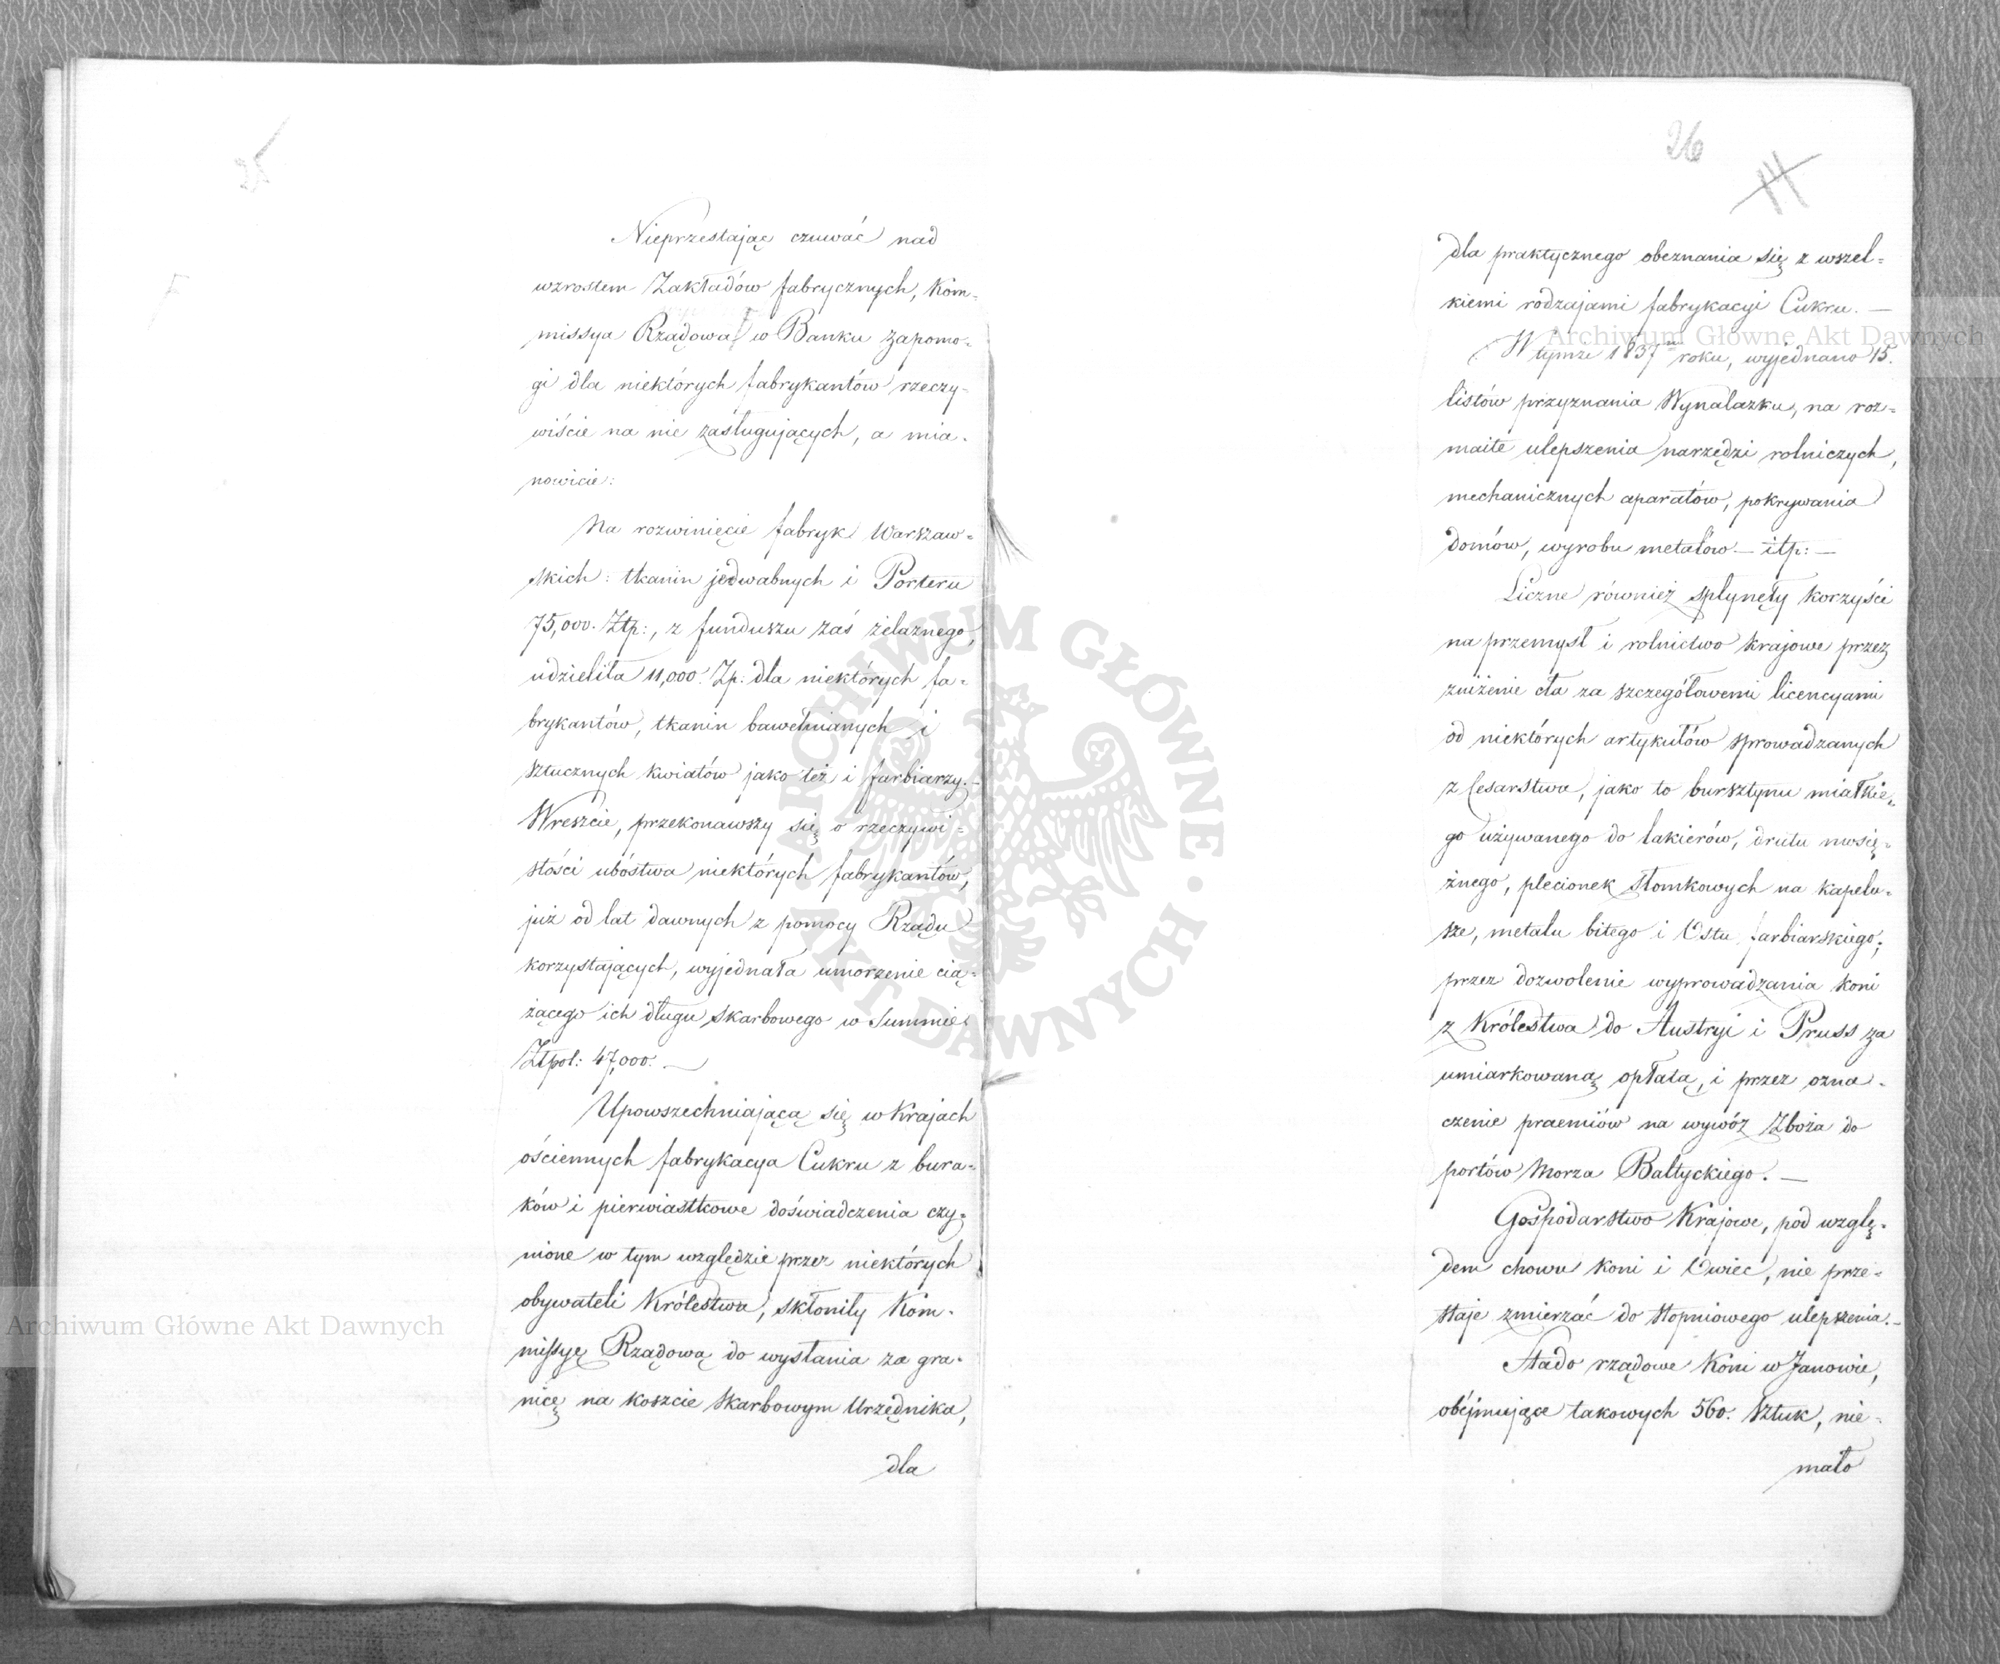 25
Nieprzestając czuwać nad
wzrostem Zakładów fabrycznych, Kom-
missya Rządowa w Banku zapomo-
gi dla niektórych fabrykantów rzeczy-
wiście na nie zasługujących, a mia-
nowicie:
Na rozwinięcie fabryk Warszaw-
skich: tkanin jedwabnych i Porteru
75,000. Ztp:, z funduszu zaś żelaznego,
udzieliła 11,000. Zp: dla niektórych fa-
brykantów, tkanin bawełnianych i
sztucznych kwiatów jako też i farbiarzy.-
Wreszcie, przekonawszy się o rzeczywi-
stości ubóstwa niektórych fabrykantów,
już od lat dawnych z pomocy Rządu
korzystających, wyjednała umorzenie cią-
żącego ich długu skarbowego w Summie
Ztpol: 47,000. —
Upowszechniająca się w Krajach
ościennych fabrykacya Cukru z bura-
ków i pierwiastkowe doświadczenia czy-
nione w tym względzie przez niektórych
obywateli Królestwa, skłoniły Kom-
missyę Rządową do wysłania za gra-
nicę na koszcie skarbowym Urzędnika,
dla
26
14
dla praktycznego obeznania się z wszel-
kiemi rodzajami fabrykacyi Cukru. —
W tymże 1837m roku, wyjednano 15.
listów przyznania Wynalazku, na roz-
maite ulepszenia narzędzi rolniczych,
mechanicznych aparatów, pokrywania
domów, wyrobu metalów — itp: —
Liczne również spłynęły korzyści
na przemysł i rolnictwo krajowe przez
zniżenie cła za szczegółowemi licencyami
od niektórych artykułów sprowadzanych
z Cesarstwa, jako to bursztynu miałkie-
go używanego do lakierów, drutu mosię-
żnego, plecionek słomkowych na kapelu-
sze, metalu bitego i Ostu farbiarskiego;
przez dozwolenie wyprowadzania koni
z Królestwa do Austryi i Pruss za
umiarkowaną opłatą, i przez ozna-
czenie praemiów na wywóz Zboża do
portów Morza Baltyckiego. —
Gospodarstwo Krajowe, pod wzglę-
dem chowu Koni i Owiec, nie prze-
staje zmierzać do stopniowego ulepszenia. —
Stado rządowe Koni w Janowie,
obéjmujące takowych 560. sztuk, nie-
mało
Archiwum Główne Akt Dawnych
Archiwum Główne Akt Dawnych
ARCHIWUM GŁÓWNE · AKT DAWNYCH ·